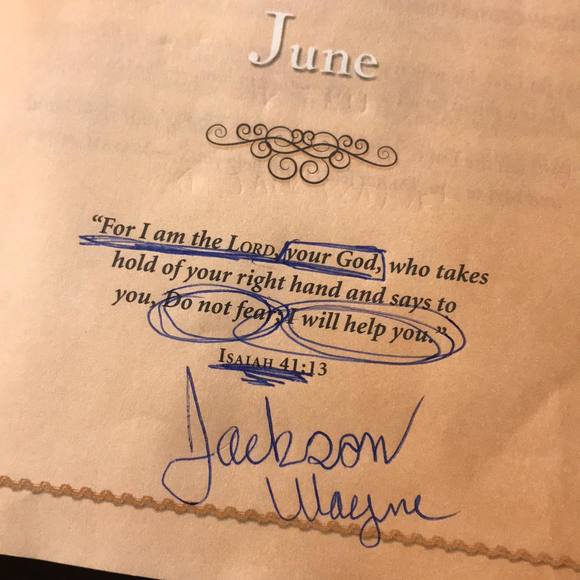 June
“For I am the LORD, your God, who takes
hold of your right hand and says to
you, Do not fear; I will help you.”
ISAIAH 41:13
Jackson
Wayne